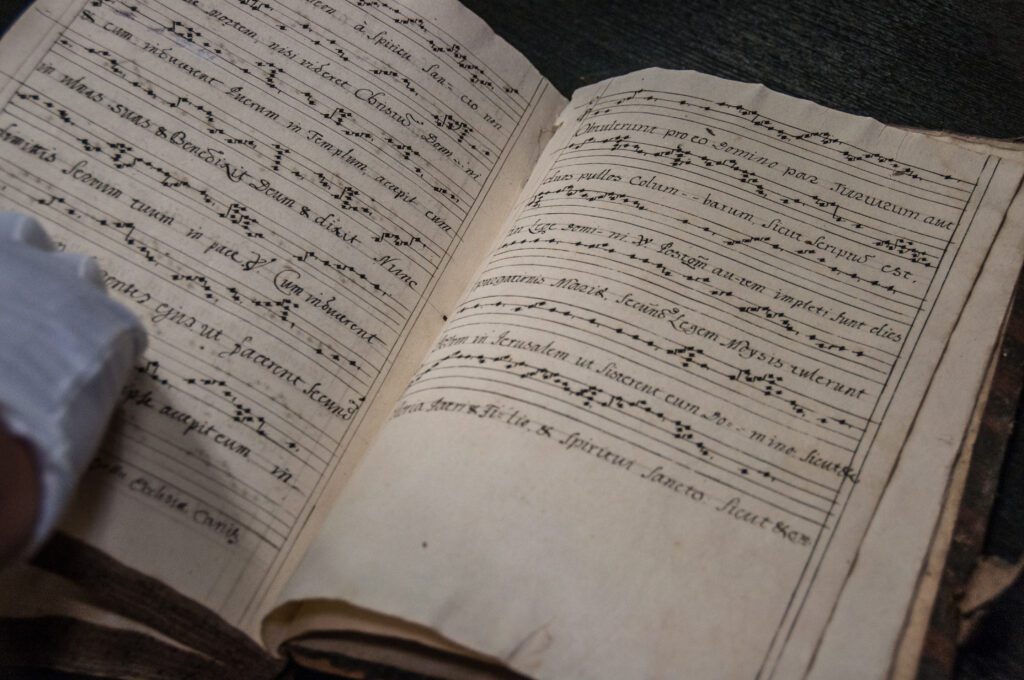 à Spiritu San-cto non
mortem, nisi videret Christus Domi-ni
& cum inducerent Puerum in Templum, accepit eum
in ulnas suas, & Benedixit Deum & dixit Nunc
dimittis Servum tuum in pace ℣. Cum inducerent
entes ejus ut facerent secund
accepit eum in
Ecclesia Canit
Obtulerunt pro eo Domino par Turturum aut
duos pullos Colum--barum, sicut scriptum est.
in Lege Domi-ni. ℣. Postqm au-tem impleti sunt dies
purgationis Mariæ, secund Legem Moysis tulerunt
in Jerusalem ut sisterent eum Do--mino. sicut &c
Gloria Patri & Filio, & Spiritui Sancto. Sicut